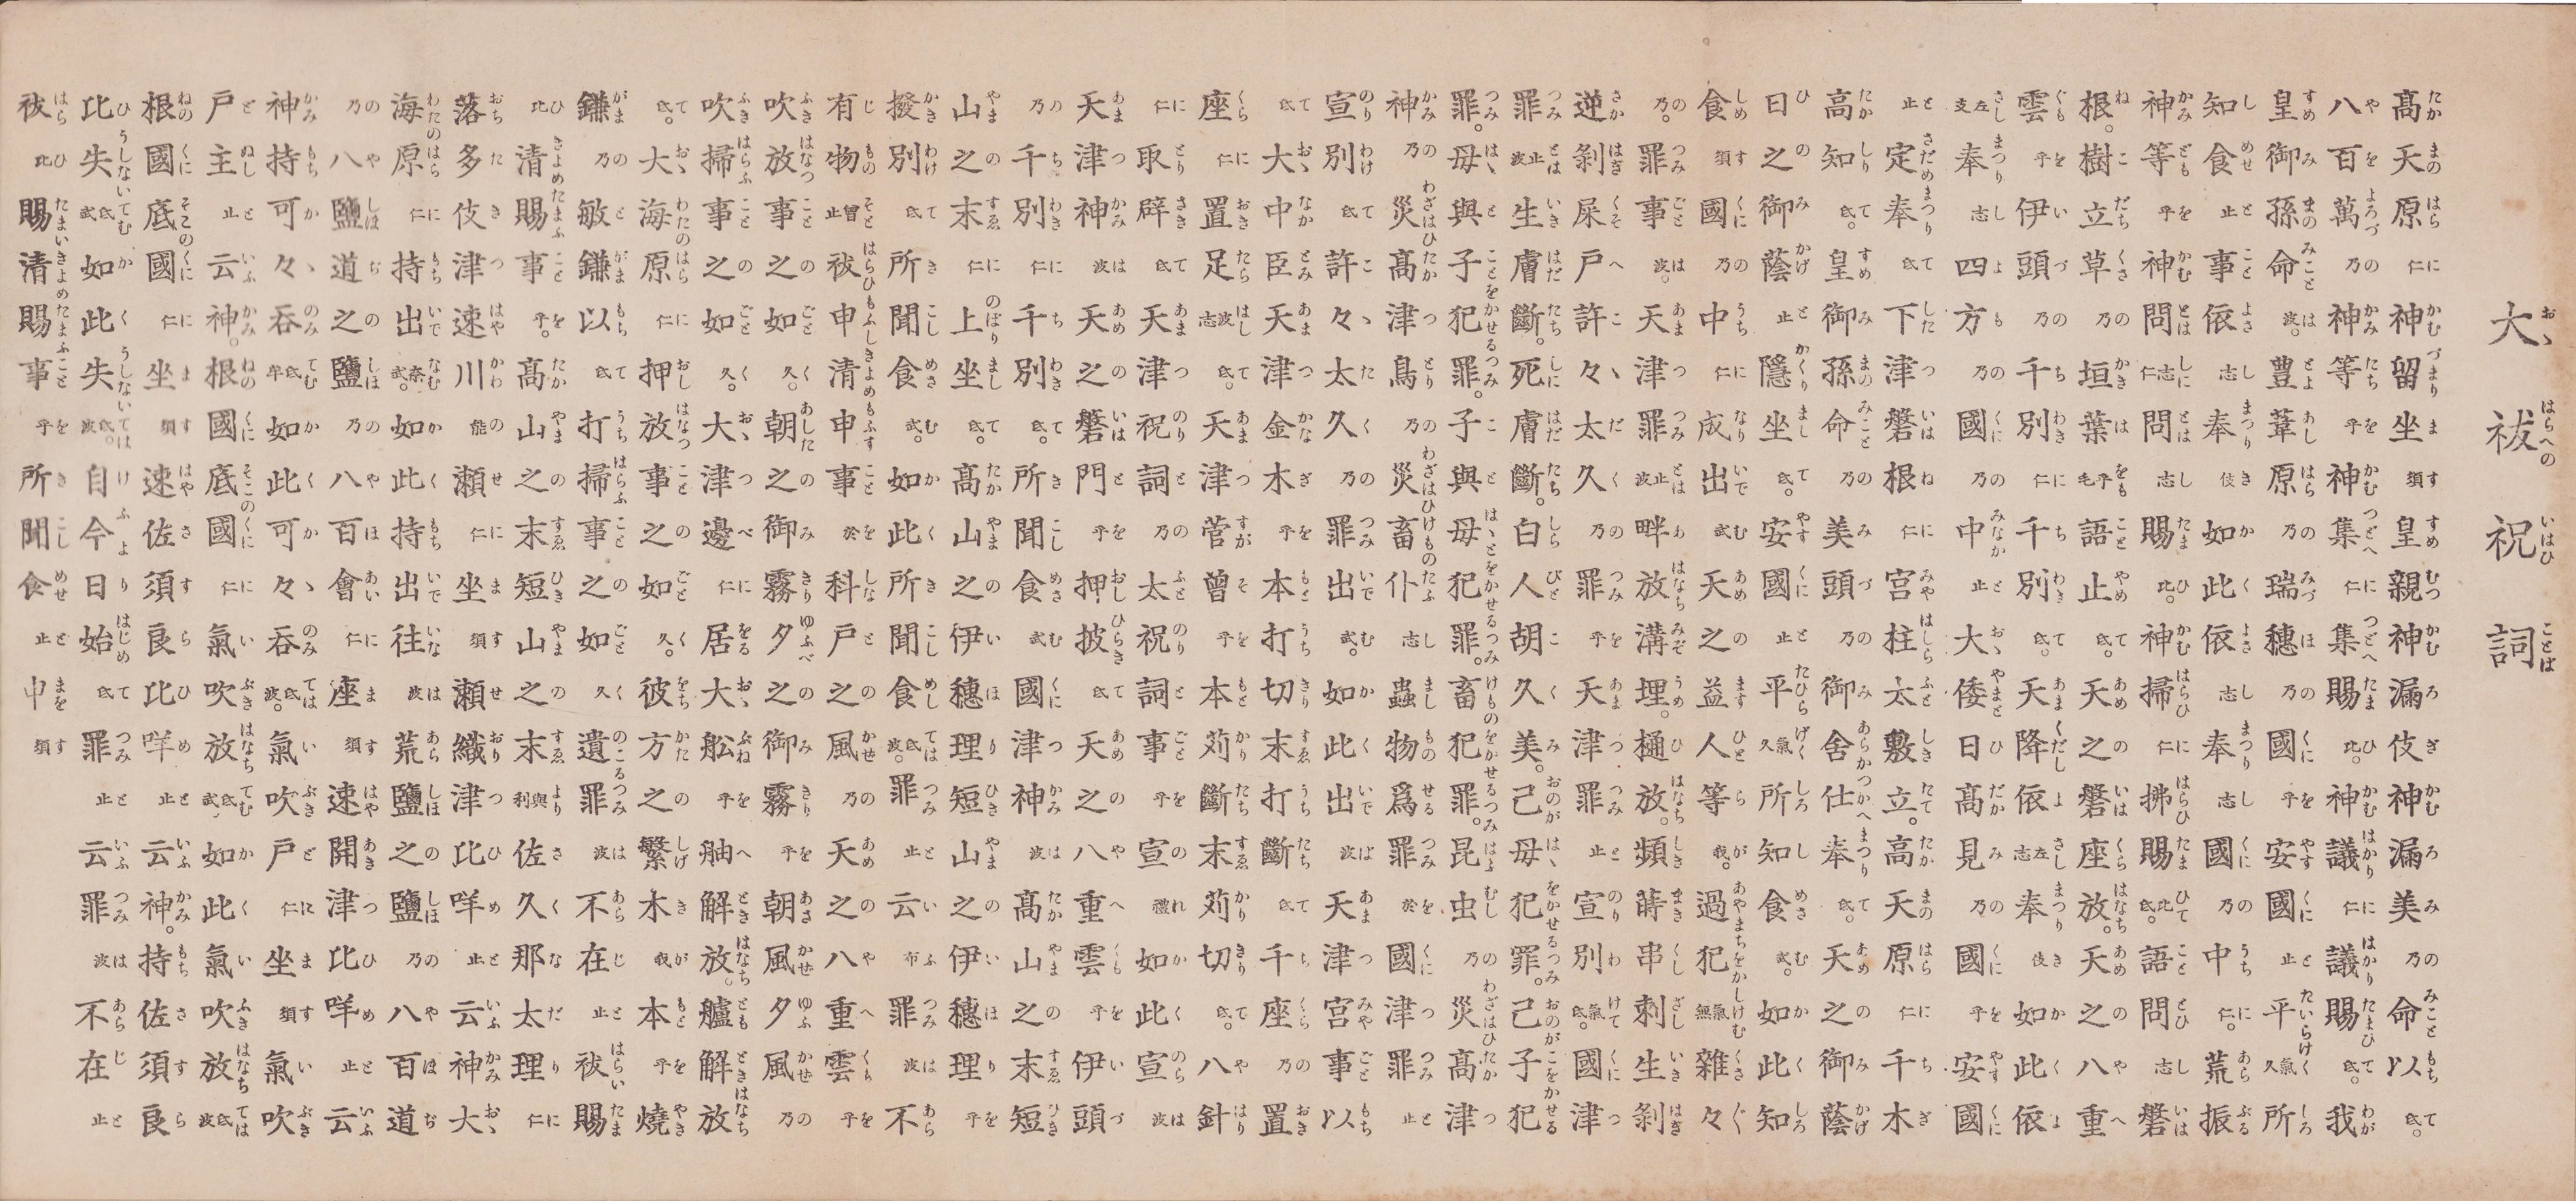 大祓祝詞
髙天原仁神留坐須皇親神漏伎神漏美乃命以氐。
八百萬乃神等乎神集仁集賜比。神議仁議賜氐。我
皇御孫命波。豊葦原乃瑞穗乃國乎安國止平氣久所
知食止事依志奉伎如此依志奉志國乃中仁。荒振
神等乎神問志仁問志賜比。神掃仁拂賜比氐。語問志磐
根。樹立草乃垣葉乎毛語止氐。神天之磐座放。天之八重
雲乎伊頭乃千別仁千別氐。天降依左志奉伎如此依
左支奉志四方乃國乃中止大倭日髙見乃國乎安國
止定奉氐下津磐根仁宮柱太敷立。高天原仁千木
高知氐。皇御孫命乃美頭乃御舍仕奉氐。天之御蔭
日之御蔭止隱坐氐。安國止平氣久所知食武。如此知
食須國乃中仁成出武天之益人等我。過犯氣無雜々
乃。罪事波。天津罪止波畔放溝埋。樋放。頻蒔串刺生剝
逆剝屎戶許々太久乃罪乎天津罪止宣別氣氐。國津
罪止波生膚斷。死膚斷。白人胡久美。己母犯罪己子犯
罪。母與子犯罪。子與母犯罪。畜犯罪。昆虫乃災髙津
神乃災髙津鳥乃災畜仆志蟲物爲罪於國津罪止
宣別氐許々太久乃罪出武。如此出波天津宮事以
氐大中臣天津金木乎本打切末打斷氐千座乃置
座仁置足波志氐。天津菅曾乎本苅斷末苅切氐。八針
仁取辟氐天津祝詞乃太祝詞事乎宣禮如此宣波
天津神波天之磐門乎押披氐天之八重雲乎伊頭
乃千別仁千別氐。所聞食武國津神波髙山之末短
山之末仁上坐氐。髙山之伊穗理短山之伊穗理乎
撥別氐所聞食武。如此所聞食氐波。罪止云布罪波不
有物曾止祓申清申事於科戶之風乃天之八重雲乎
吹放事之如久。朝之御霧夕之御霧乎朝風夕風乃
吹掃事之如久。大津邊仁居大舩乎舳解放。艫解放
氐。大海原仁押放事之如久。彼方之繁木我本乎燒
鎌乃敏鎌以氐打掃事之如久遺罪波不在止祓賜
比清賜事乎。髙山之末短山之末與利佐久那太理仁
落多伎津速川能瀨仁坐須瀨織津比咩止云神大
海原仁持出奈武。如此持出往波荒鹽之鹽乃八百道
乃八鹽道之鹽乃八百會仁座須速開津比咩止云
神持可々呑氐牟如此可々呑氐波。氣吹戶仁坐須氣吹
戶主止云神。根國底國仁氣吹放氐武如此氣吹放氐波
根國底國仁坐須速佐須良比咩止云神。持佐須良
比失氐武如此失氐波。自今日始氐罪止云罪波不在止
祓比賜清賜事乎所聞食止申須